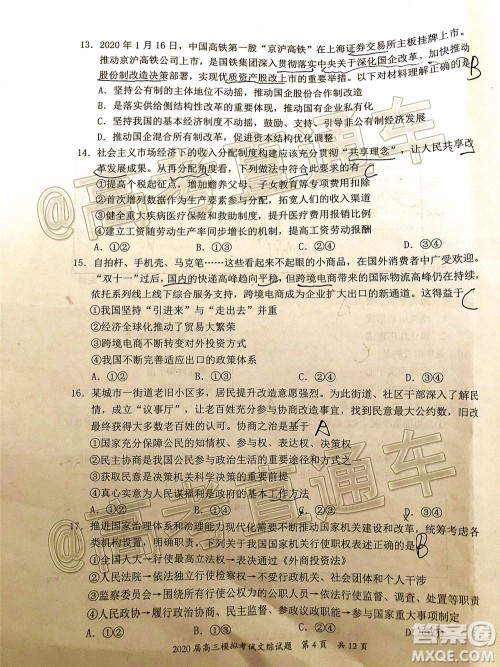 13. 2020 年 1 月 16 日，中国高铁第一股“京沪高铁”在上海证券交易所主板挂牌上市。
推动京沪高铁公司上市，是国铁集团深入贯彻落实中央关于深化国企改革、加快推动
股份制改造决策部署，实现优质资产股改上市的重要举措。以下对材料理解正确的是 B
A. 坚持公有制的主体地位不动摇，推动国企股份合作制改造
B. 坚持
C. 坚持我国的基本经济制度不动摇，推动非公有制经济发展
D. 推动混合所有制改革，促进资本结构优化调整
14. 社会主义市场经济下的收入分配制度构建应该充分贯彻“共享理念”，让人民共享改
革发展成果。从再分配角度看，下列做法符合要求的有
①提高个税起征点，增加赡养父母、子女教育等专项附加扣除
②首次增列数据作为生产要素，增加按要素分配的方式
③健全重大疾病医疗保险和救助制度，提升医疗费用报销比例
④建立工资随劳动生产率同步增长的机制，提高工人劳动报酬
A. ①② B. ①③ C. ②④ D. ③④
15. 自拍杆、手机壳、马克笔……这些看起来不起眼的小商品，在国外消费者中广受欢迎。
“双十一”过后，国内的快递高峰趋于平稳，但跨境电商带来的国际物流高峰仍在持续，
依托系列线上线下综合服务支持，跨境电商成为企业扩大出口的新通道。这得益于 C
①我国坚持“引进来”与“走出去”并重
②经济全球化推动了贸易大繁荣
③跨境电商不断转变对外投资方式
④我国不断完善适应出口的政策体系
A. ①② B. ①③ C. ②④ D. ③④
16. 某城市一街道老旧小区多，居民提升改造意愿强烈。为此街道、社区在深入了解民情
后，成立“议事厅”，让老百姓充分参与协商改造事宜，找到民意最大公约数，用最
终获得了大多数老百姓的认可。协商之治是基于 A
①国家充分保障公民的知情权、参与权、表达权、决策权
②民主协商是我国公民参与政治生活的重要途径
③民意是政府决策机关科学决策的重要前提
④真心实意为人民谋福利是政府的基本工作方法
A. ②③ B. ①③ C. ②④ D. ①④
17. 推进国家治理体系和治理能力现代化，需要不断推动国家机关建设和改革，统筹考虑
各类机构设置，明确职责。下列关于我国国家机关行使职权表述正确的是 B
①全国人大一行使最高立法权一通过《外商投资法》
②人民法院一依法独立行使检察权一不受行政机关、社会团体和个人干涉
③监察委员会一
④人民政协一履行政治协商、民主监督、参政议政职能一行使国家重大事项决定权
A. ①② B. ①③ C. ②④
2020 届高三模拟考试文综试题 第 4 页 共 12 页
@高考直通车
@高考直通车